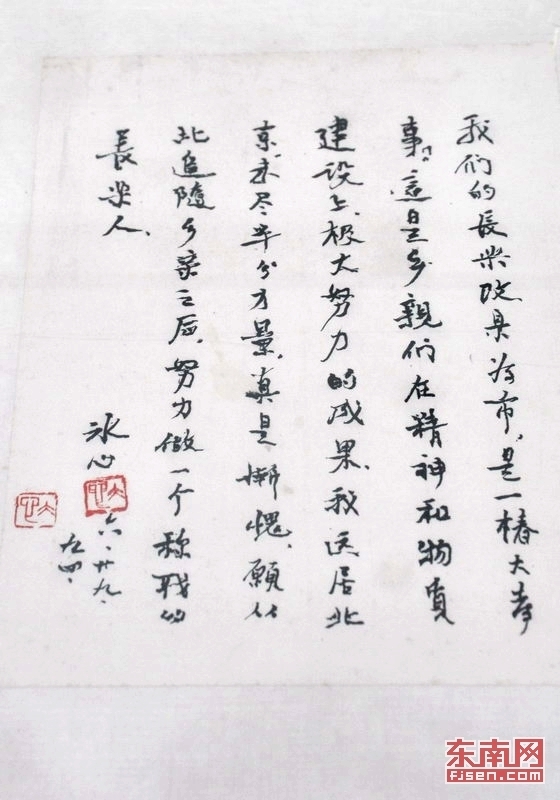 我们的長乐改县为市，是一椿大喜
事，這是乡親们在精神和物质
建设上，极大努力的成果，我远居北
京，未尽半分力量，真是惭愧，願从
此追随乡亲之后，努力做一个称职的
長乐人、
冰心
六、廿九、
九四、
东南网
fjsen.com